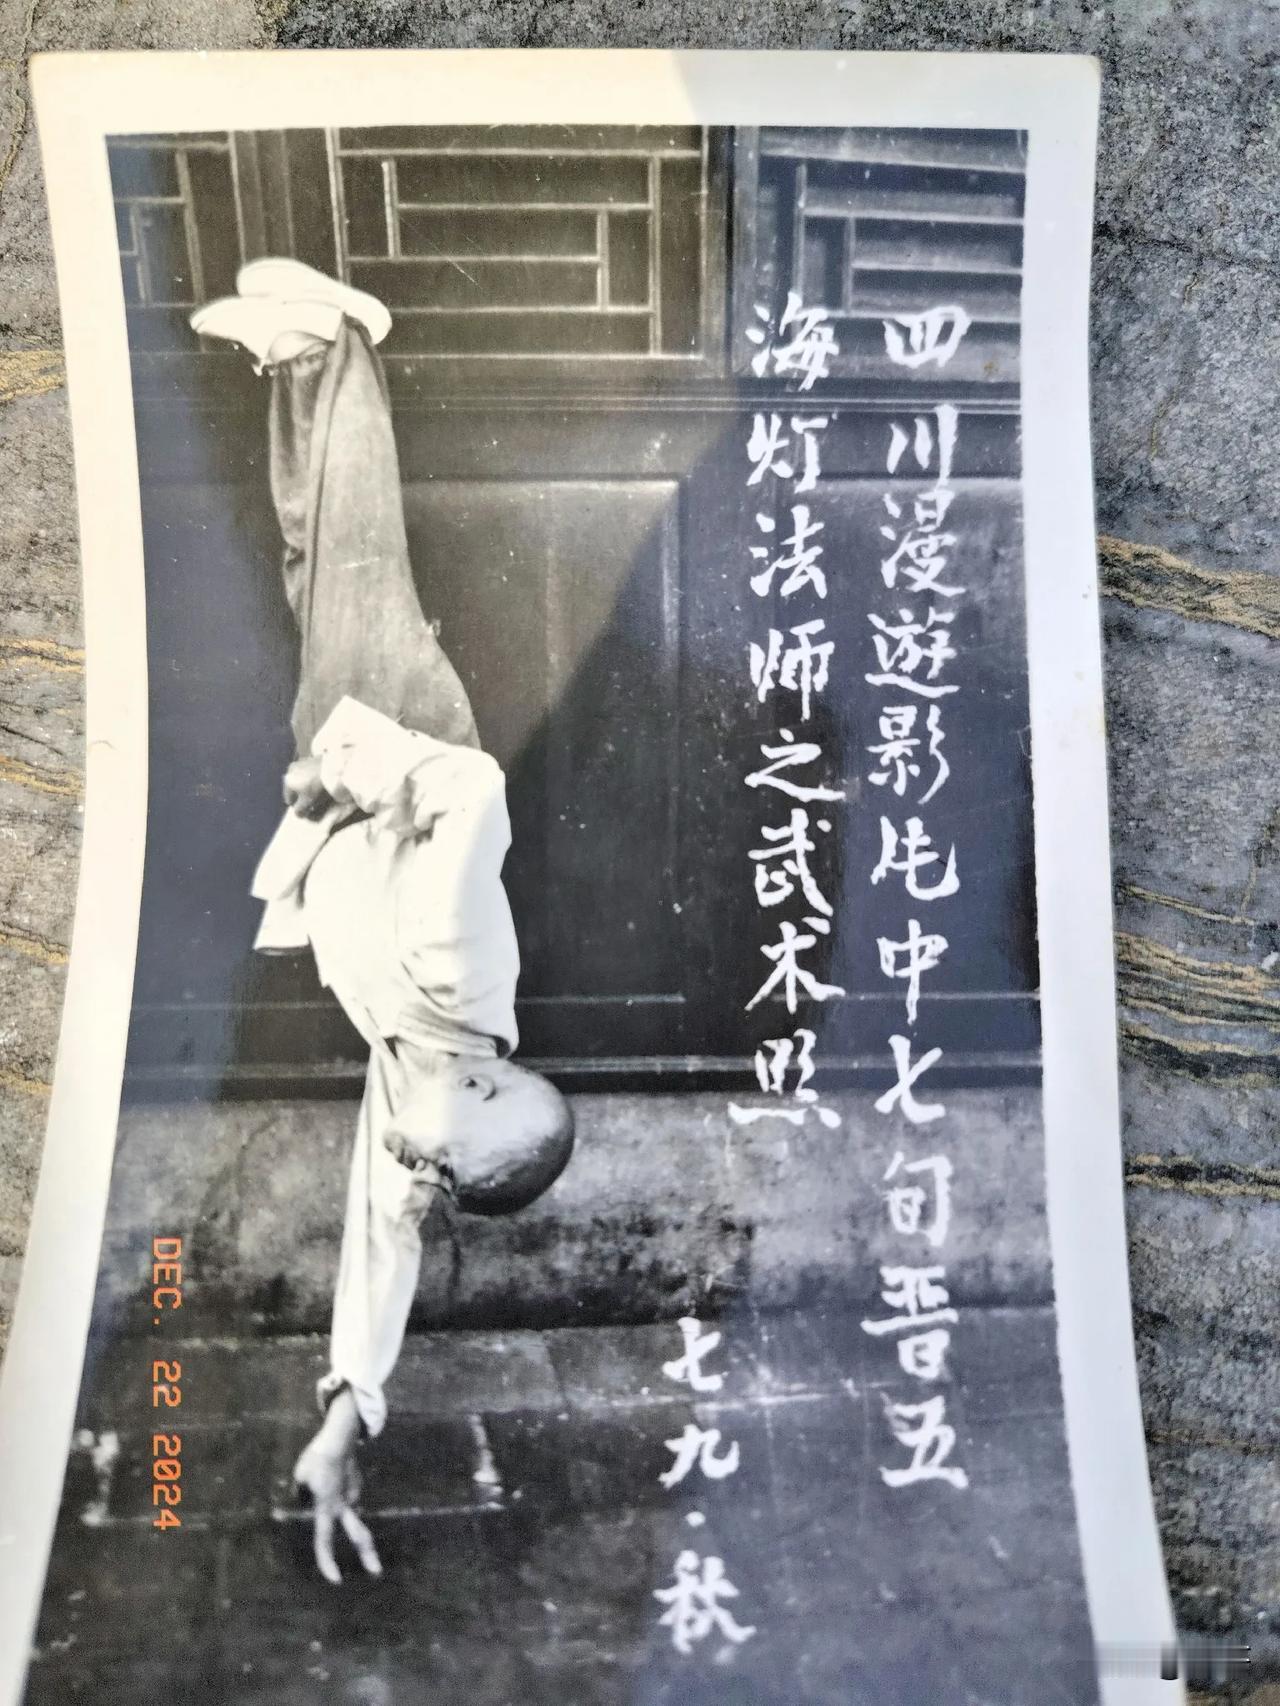 四川漫遊影片中七旬晋五
海灯法师之武术照
七九·秋
DEC. 22 2024